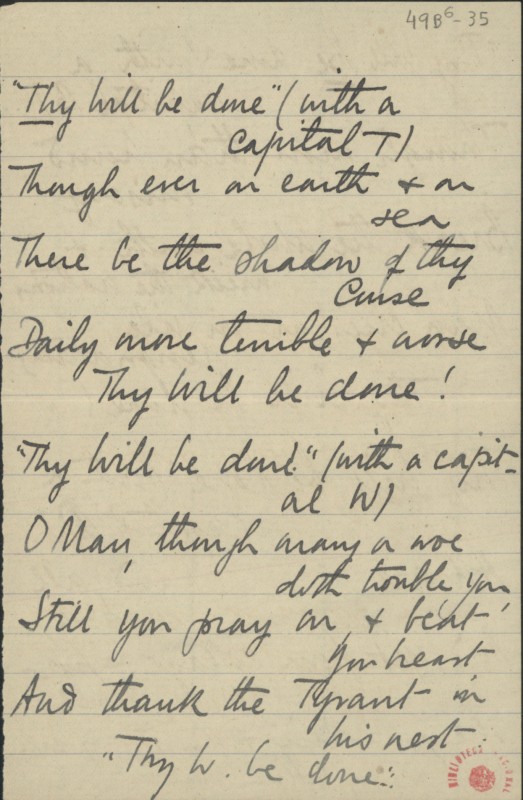 49B⁶-35
"Thy Will be done" (with a
capital T)
Though ever on earth & on
sea
There be the shadow of thy
Curse
Daily more terrible & worse
Thy Will be done!
"Thy Will be done!" (with a capit-
al W)
O Man, though many a woe
doth trouble you,
Still you pray on, & beat
your heart
And thank the Tyrant in
his nest
"Thy W. be done".
BIBLIOTECA NACIONAL